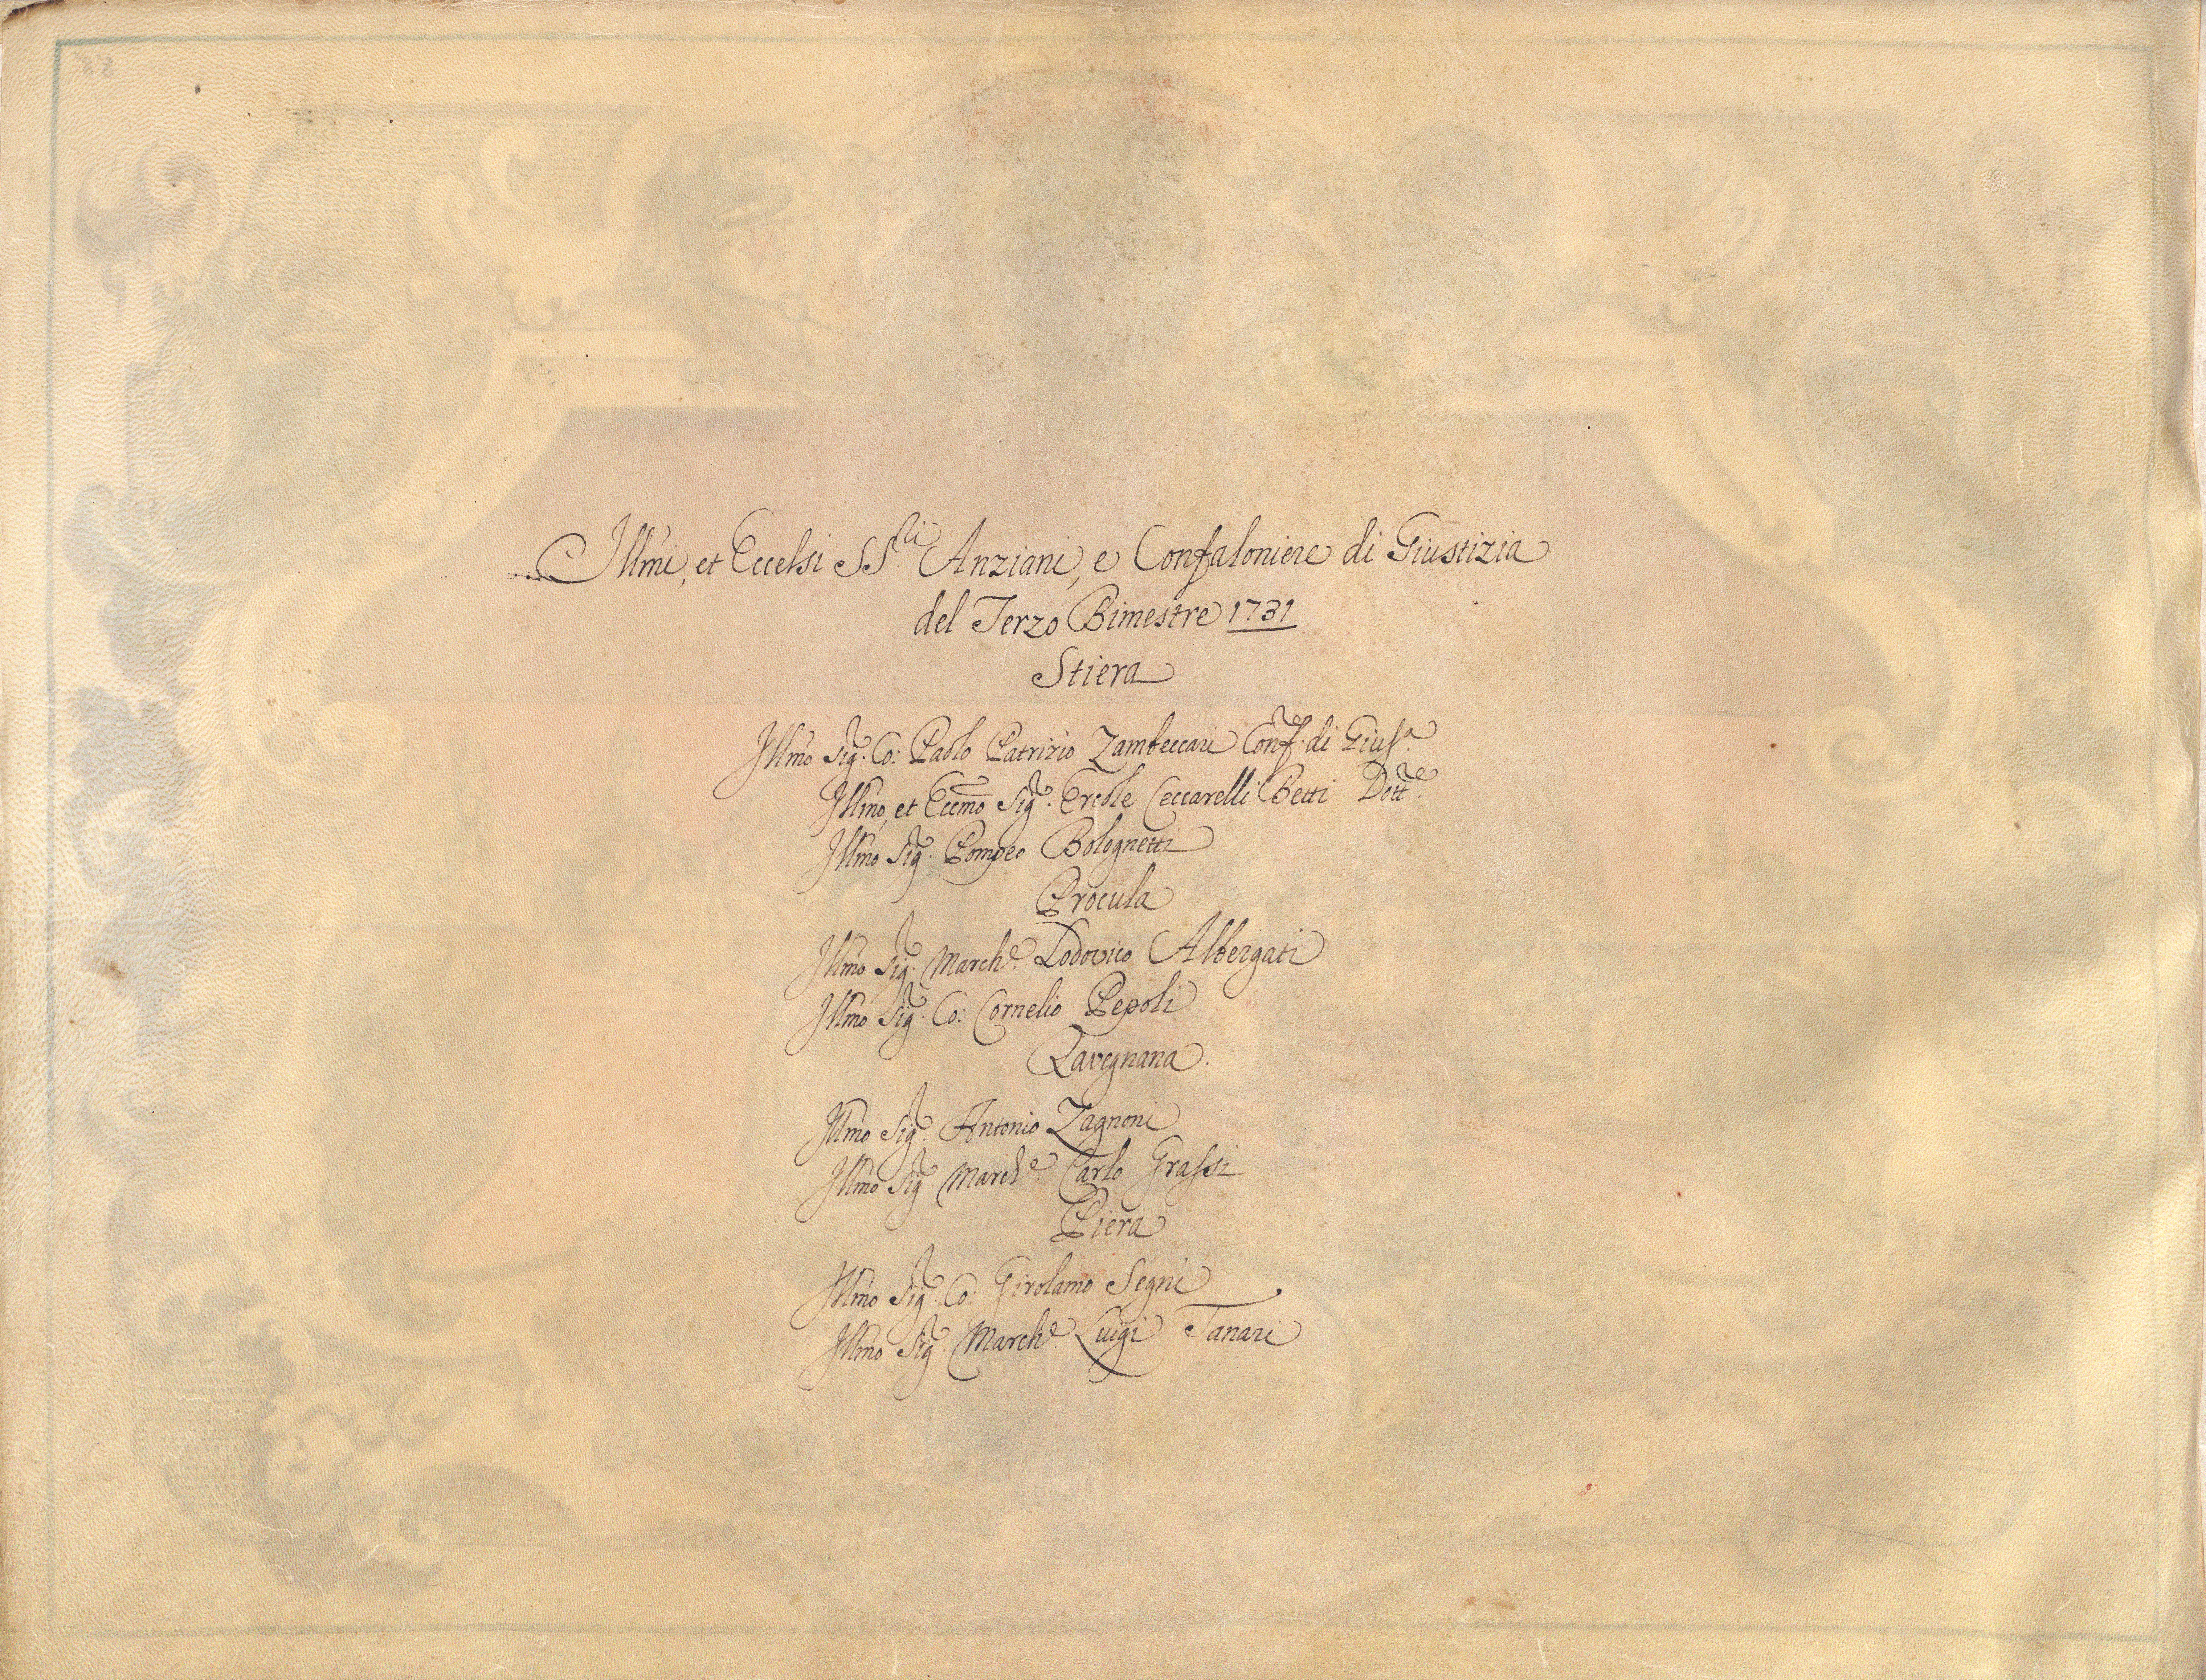 Illmi, et Eccelsi SS.ri Anziani, e Confaloniere di Giustizia
del Terzo Bimestre 1731
Stiera
Illmo Sig.r Co: Paolo Patrizio Zambeccari Conf.re di Gius.a
Illmo, et Eccmo Sig.r Ercole Ceccarelli Betti Dott.re
Illmo Sig.r Pompeo Bolognetti
Procula
Illmo Sig.r March.e Lodovico Albergati
Illmo Sig.r Co: Cornelio Pepoli
Ravegnana.
Illmo Sig.r Antonio Zagnoni
Illmo Sig.r March.e Carlo Grassi
Piera
Illmo Sig.r Co: Girolamo Segni
Illmo Sig.r March.e Luigi Tanari